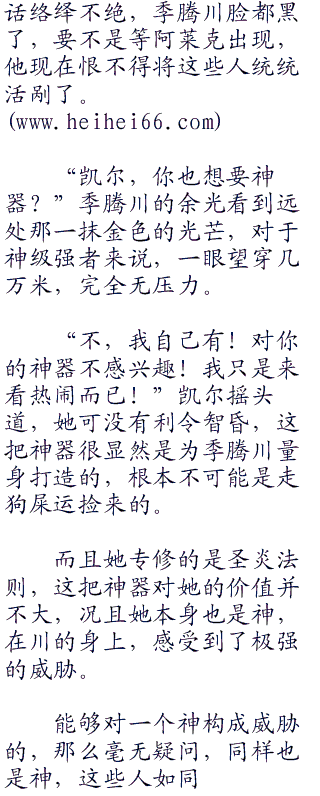 话络绎不绝，季腾川脸都黑
了，要不是等阿莱克出现，
他现在恨不得将这些人统统
活剐了。
(www.heihei66.com)
“凯尔，你也想要神
器？”季腾川的余光看到远
处那一抹金色的光芒，对于
神级强者来说，一眼望穿几
万米，完全无压力。
“不，我自己有！对你
的神器不感兴趣！我只是来
看热闹而已！”凯尔摇头
道，她可没有利令智昏，这
把神器很显然是为季腾川量
身打造的，根本不可能是走
狗屎运捡来的。
而且她专修的是圣炎法
则，这把神器对她的价值并
不大，况且她本身也是神，
在川的身上，感受到了极强
的威胁。
能够对一个神构成威胁
的，那么毫无疑问，同样也
是神，这些人如同